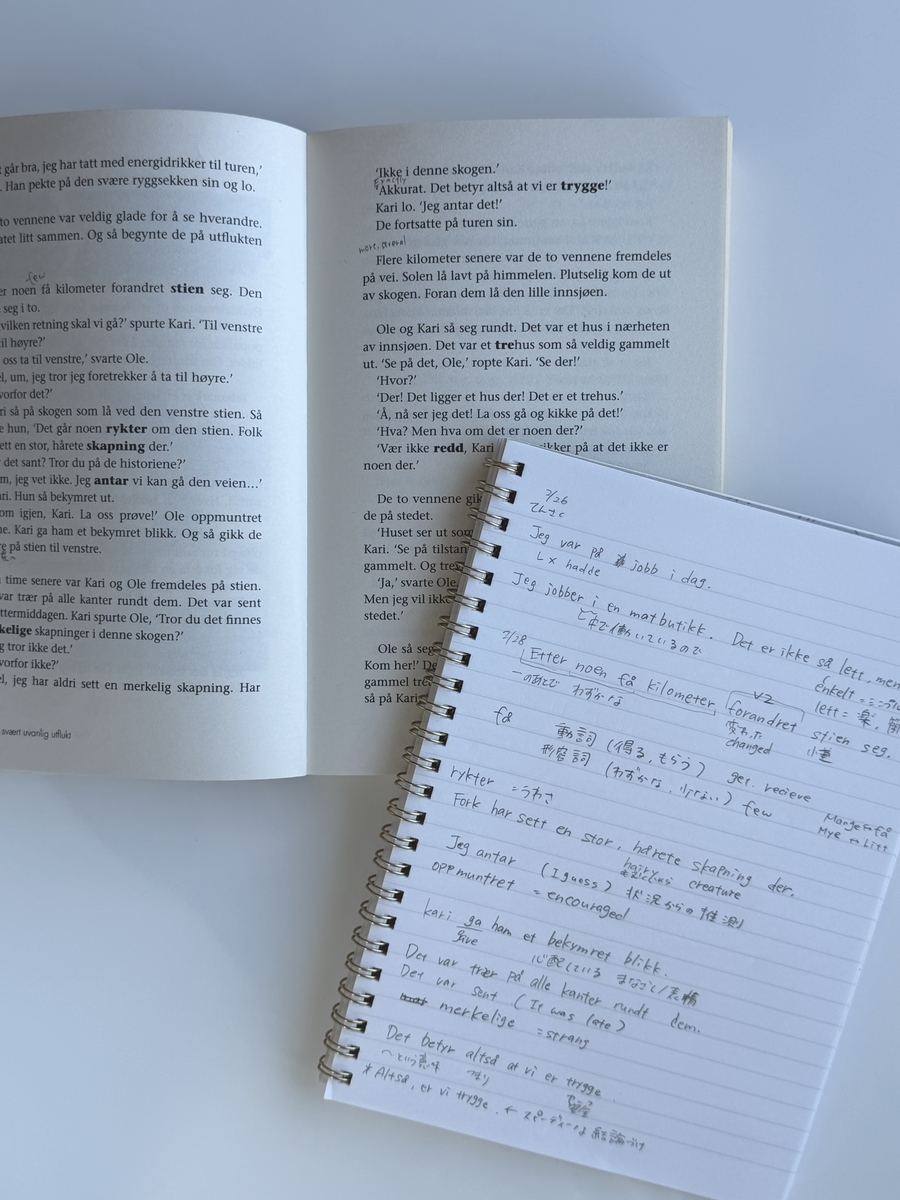 går bra, jeg har tatt med energidrikker til turen,’
. Han pekte på den svære ryggsekken sin og lo.
to vennene var veldig glade for å se hverandre.
atet litt sammen. Og så begynte de på utflukten
few
er noen få kilometer forandret stien seg. Den
seg i to.
vilken retning skal vi gå?’ spurte Kari. ‘Til venstre
til høyre?’
oss ta til venstre,’ svarte Ole.
el, um, jeg tror jeg foretrekker å ta til høyre.’
vorfor det?’
ri så på skogen som lå ved den venstre stien. Så
e hun, ‘Det går noen rykter om den stien. Folk
ett en stor, hårete skapning der.’
det sant? Tror du på de historiene?’
m, jeg vet ikke. Jeg antar vi kan gå den veien…’
ari. Hun så bekymret ut.
om igjen, Kari. La oss prøve!’ Ole oppmuntret
ne. Kari ga ham et bekymret blikk. Og så gikk de
på stien til venstre.
time senere var Kari og Ole fremdeles på stien.
var trær på alle kanter rundt dem. Det var sent
ttermiddagen. Kari spurte Ole, ‘Tror du det finnes
kelige skapninger i denne skogen?’
g tror ikke det.’
vorfor ikke?’
el, jeg har aldri sett en merkelig skapning. Har
svært uvanlig utflukt
‘Ikke i denne skogen.’
exactly
‘Akkurat. Det betyr altså at vi er trygge!’
Kari lo. ‘Jeg antar det!’
De fortsatte på turen sin.
more, several
Flere kilometer senere var de to vennene fremdeles
på vei. Solen lå lavt på himmelen. Plutselig kom de ut
av skogen. Foran dem lå den lille innsjøen.
Ole og Kari så seg rundt. Det var et hus i nærheten
av innsjøen. Det var et trehus som så veldig gammelt
ut. ‘Se på det, Ole,’ ropte Kari. ‘Se der!’
‘Hvor?’
‘Der! Det ligger et hus der! Det er et trehus.’
‘Å, nå ser jeg det! La oss gå og kikke på det!’
‘Hva? Men hva om det er noen der?’
‘Vær ikke redd, Kari ikker på at det ikke er
noen der.’
De to vennene gik
de på stedet.
‘Huset ser ut som
Kari. ‘Se på tilstan
gammelt. Og tre
‘Ja,’ svarte Ole.
Men jeg vil ikk
stedet.’
Ole så seg
Kom her!’ De
gammel tre
så på Kari
2/26
てんさく
Jeg var på jobb i dag.
L x hadde
Jeg jobber i en matbutikk. Det er ikke så lett, men
中で働いているので
enkelt
lett = 楽、簡
2/28
Etter noen få kilometer forandret stien seg.
V2
〜のあとで わずかな
変わった
changed
小道
få
動詞 (得る、もらう) get. recieve
形容詞 (わずかな、少ない) few
Mange ↔ få
Mye ↔ litt
rykter = うわさ
Fork har sett en stor, hårete skapning der.
hairy creature
Jeg antar (I guess) 状況からの推測
oppmuntret = encouraged
kari ga ham et bekymret blikk.
give 心配している まなざし/表情
Det var trær på alle kanter rundt dem.
Det var sent (It was late)
merkelige = strang
Det betyr altså at vi er trygge.
〜という意味 つまり 安全
* Altså, er vi trygge. ← スピーディーな結論づけ